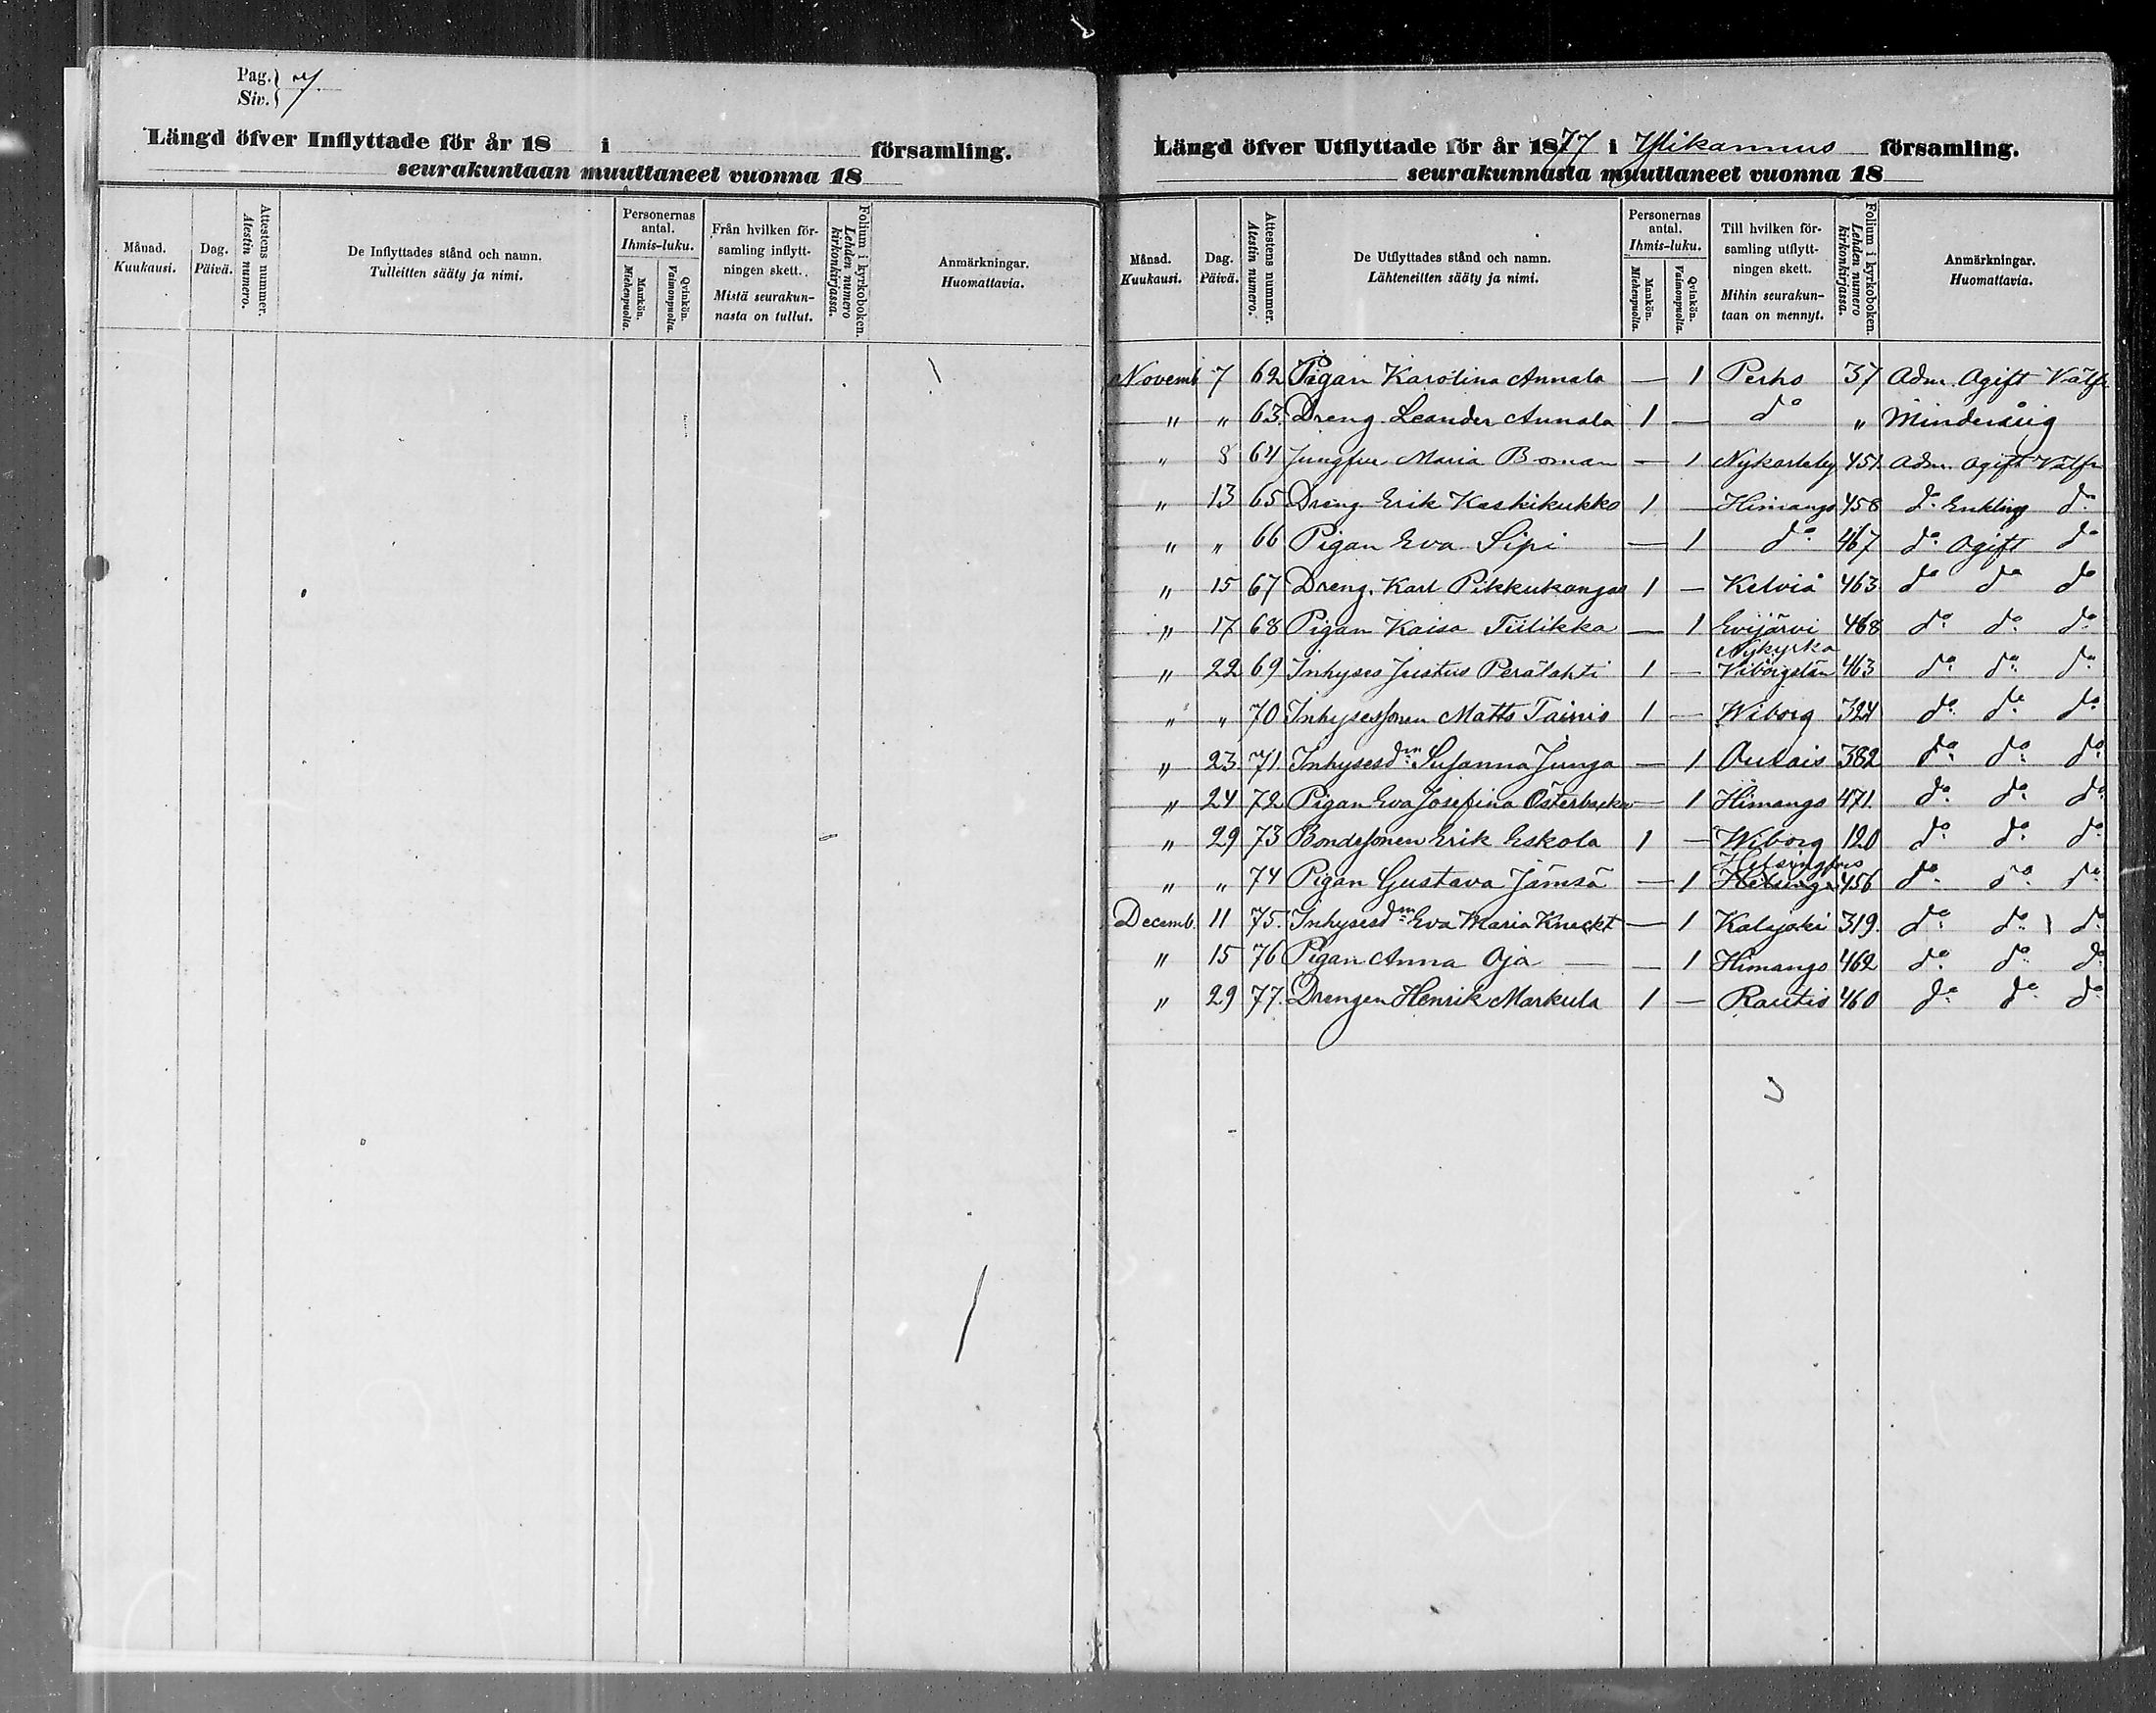 Pag. 7.
Siv.
Längd öfver Inflyttade för år 18 i församling.
seurakuntaan muuttaneet vuonna 18
Månad. Kuukausi.
Dag. Päivä.
Attestens nummer. Atestin numero.
De Inflyttades stånd och namn.
Tulleitten sääty ja nimi.
Personernas antal. Ihmis-luku.
Mankön. Miehenpuolta.
Qvinkön. Vaimonpuolta.
Från hvilken för-
samling inflytt-
ningen skett.
Mistä seurakun-
nasta on tullut.
Folium i kyrkoboken. Lehden numero kirkonkirjassa.
Anmärkningar.
Huomattavia.
Längd öfver Utflyttade för år 1877 i Ylikannus församling.
seurakunnasta muuttaneet vuonna 18
Månad. Kuukausi.
Dag. Päivä.
Attestens nummer. Atestin numero.
De Utflyttades stånd och namn.
Lähteneitten sääty ja nimi.
Personernas antal. Ihmis-luku.
Mankön. Miehenpuolta.
Qvinkön. Vaimonpuolta.
Till hvilken för-
samling utflytt-
ningen skett.
Mihin seurakun-
taan on mennyt.
Folium i kyrkoboken. Lehden numero kirkonkirjassa.
Anmärkningar.
Huomattavia.
Novemb 7 62 Pigan Karolina Annala — 1 Perho 37 Adm. Ogift Välfr
" " 63. Dreng. Leander Annala 1 — do " Minderårig
" 8 64 Jungfru Maria Boman — 1 Nykarleby 451. Adm. Ogift Välfr
" 13 65 Dreng Erik Keskikukko 1 — Himango 458 do Enkling do
" " 66 Pigan Eva Sipi — 1 do 467 do Ogift do
" 15 67 Dreng. Karl Pikkukangas 1 — Kelviå 463 do do do
" 17 68 Pigan Kaisa Tiilikka — 1 Evijärvi 468 do do do
Nykyrka
" 22 69 Inhyses Justus Perälahti 1 — Viborgslän 463 do do do
" " 70 Inhysessonen Matts Tainio 1 — Wiborg 324 do do do
" 23. 71. Inhysesdrn Susanna Junga — 1 Outais 382 do do do
" 24 72 Pigan Eva Josefina Österbacka — 1 Himango 471. do do do
" 29 73 Bondesonen Erik Eskola 1 — Wiborg 120 do do do
Helsingfors
" " 74 Pigan Gustava Jämsä — 1 Helsinge 456 do do do
Decemb. 11 75. Inhysesdrn Eva Maria Kneckt — 1 Kalajoki 319. do do do
" 15 76 Pigan Anna Oja — — 1 Himango 462 do do do
" 29 77. Drengen Henrik Markula 1 — Rautio 460 do do do